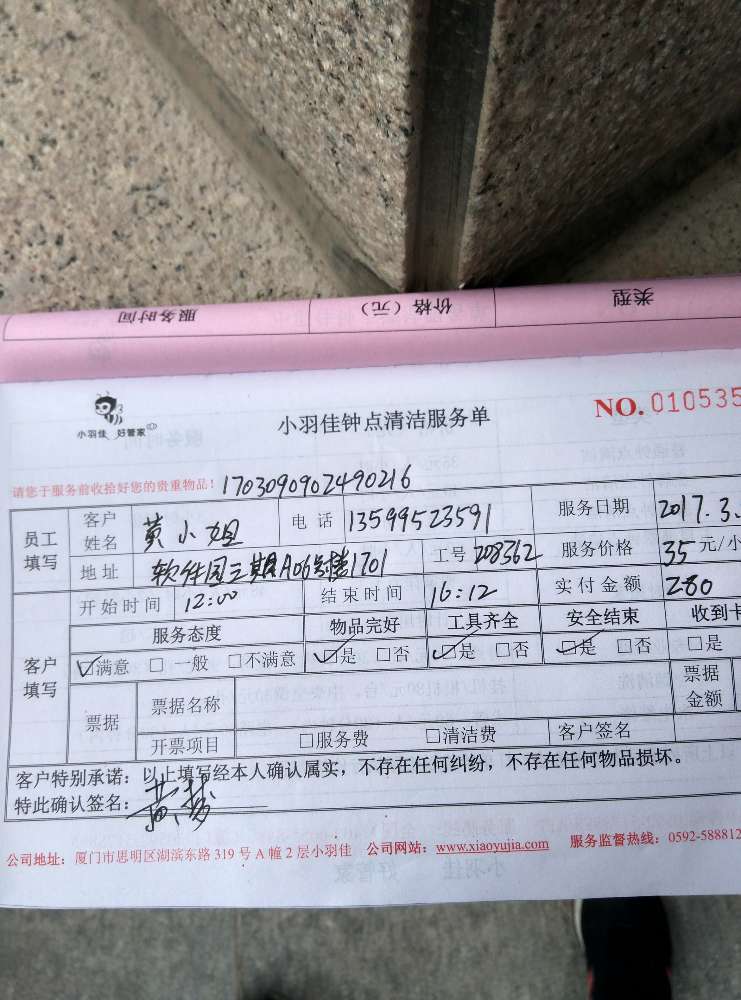 服务时间 价格（元） 类型
小羽佳 好管家
小羽佳钟点清洁服务单
NO. 010535
请您于服务前收拾好您的贵重物品！ 1703090902490216
员工填写 客户姓名 黄小姐 电话 13599523591 服务日期 2017.3.
地址 软件园三期A06号楼1701 工号 208362 服务价格 35元/小
客户填写 开始时间 12:00 结束时间 16:12 实付金额 280
服务态度 物品完好 工具齐全 安全结束 收到卡
☑满意 □一般 □不满意 ☑是 □否 ☑是 □否 ☑是 □否 □是
票据 票据名称 票据金额
开票项目 □服务费 □清洁费 客户签名
客户特别承诺：以上填写经本人确认属实，不存在任何纠纷，不存在任何物品损坏。
特此确认签名：黄梦
公司地址：厦门市思明区湖滨东路319号A幢2层小羽佳 公司网站：www.xiaoyujia.com 服务监督热线：0592-588812